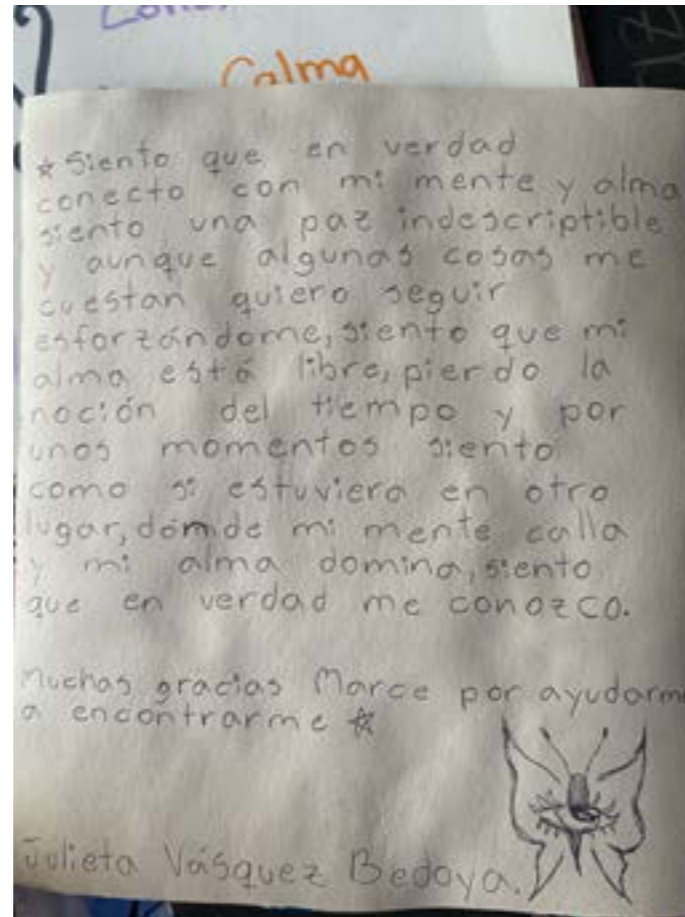 Calma
☆ Siento que en verdad
conecto con mi mente y alma
siento una paz indescriptible
y aunque algunas cosas me
cuestan quiero seguir
esforzándome, siento que mi
alma está libre, pierdo la
noción del tiempo y por
unos momentos siento
como si estuviera en otro
lugar, dómde mi mente calla
y mi alma domina, siento
que en verdad me conozco.
Muchas gracias Marce por ayudarm
a encontrarme ☆
Julieta Vásquez Bedoya.